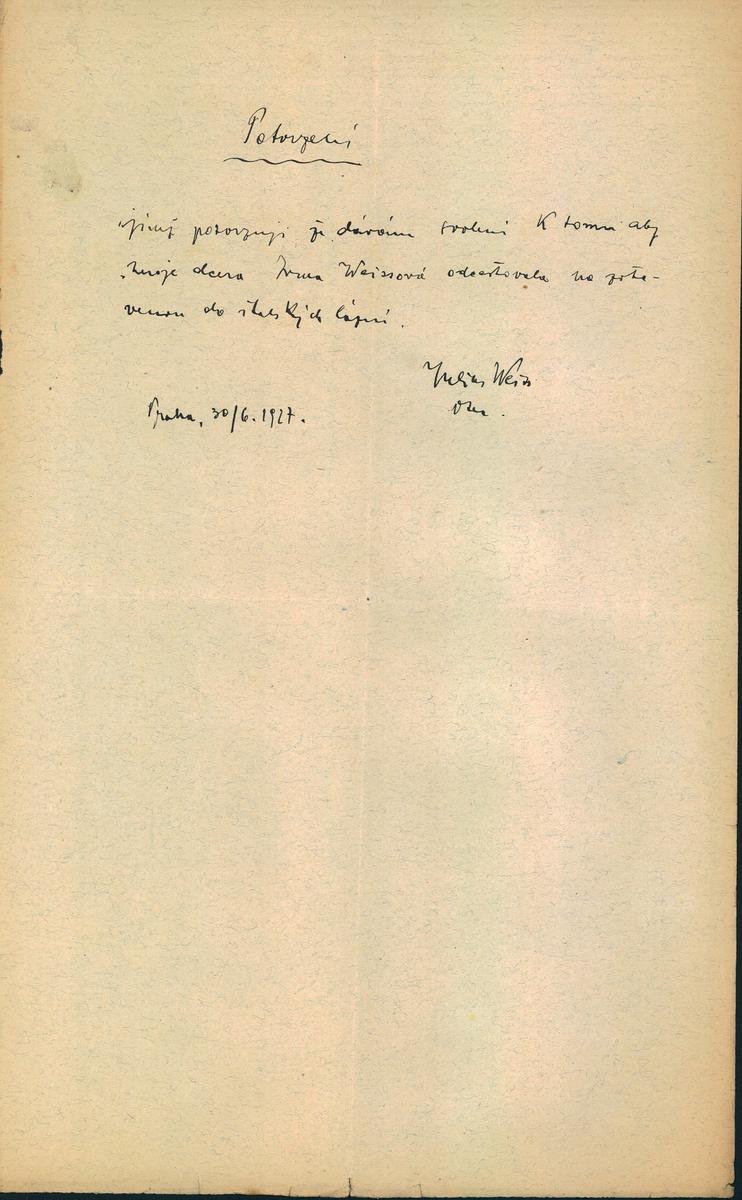 Potvrzení
jímž potvrzuji že dávám svolení K tomu aby
moje dcera Irma Weissová odcestovala na zota-
venou do italských lázní.
Julius Weiss
Praha, 30/6. 1927.